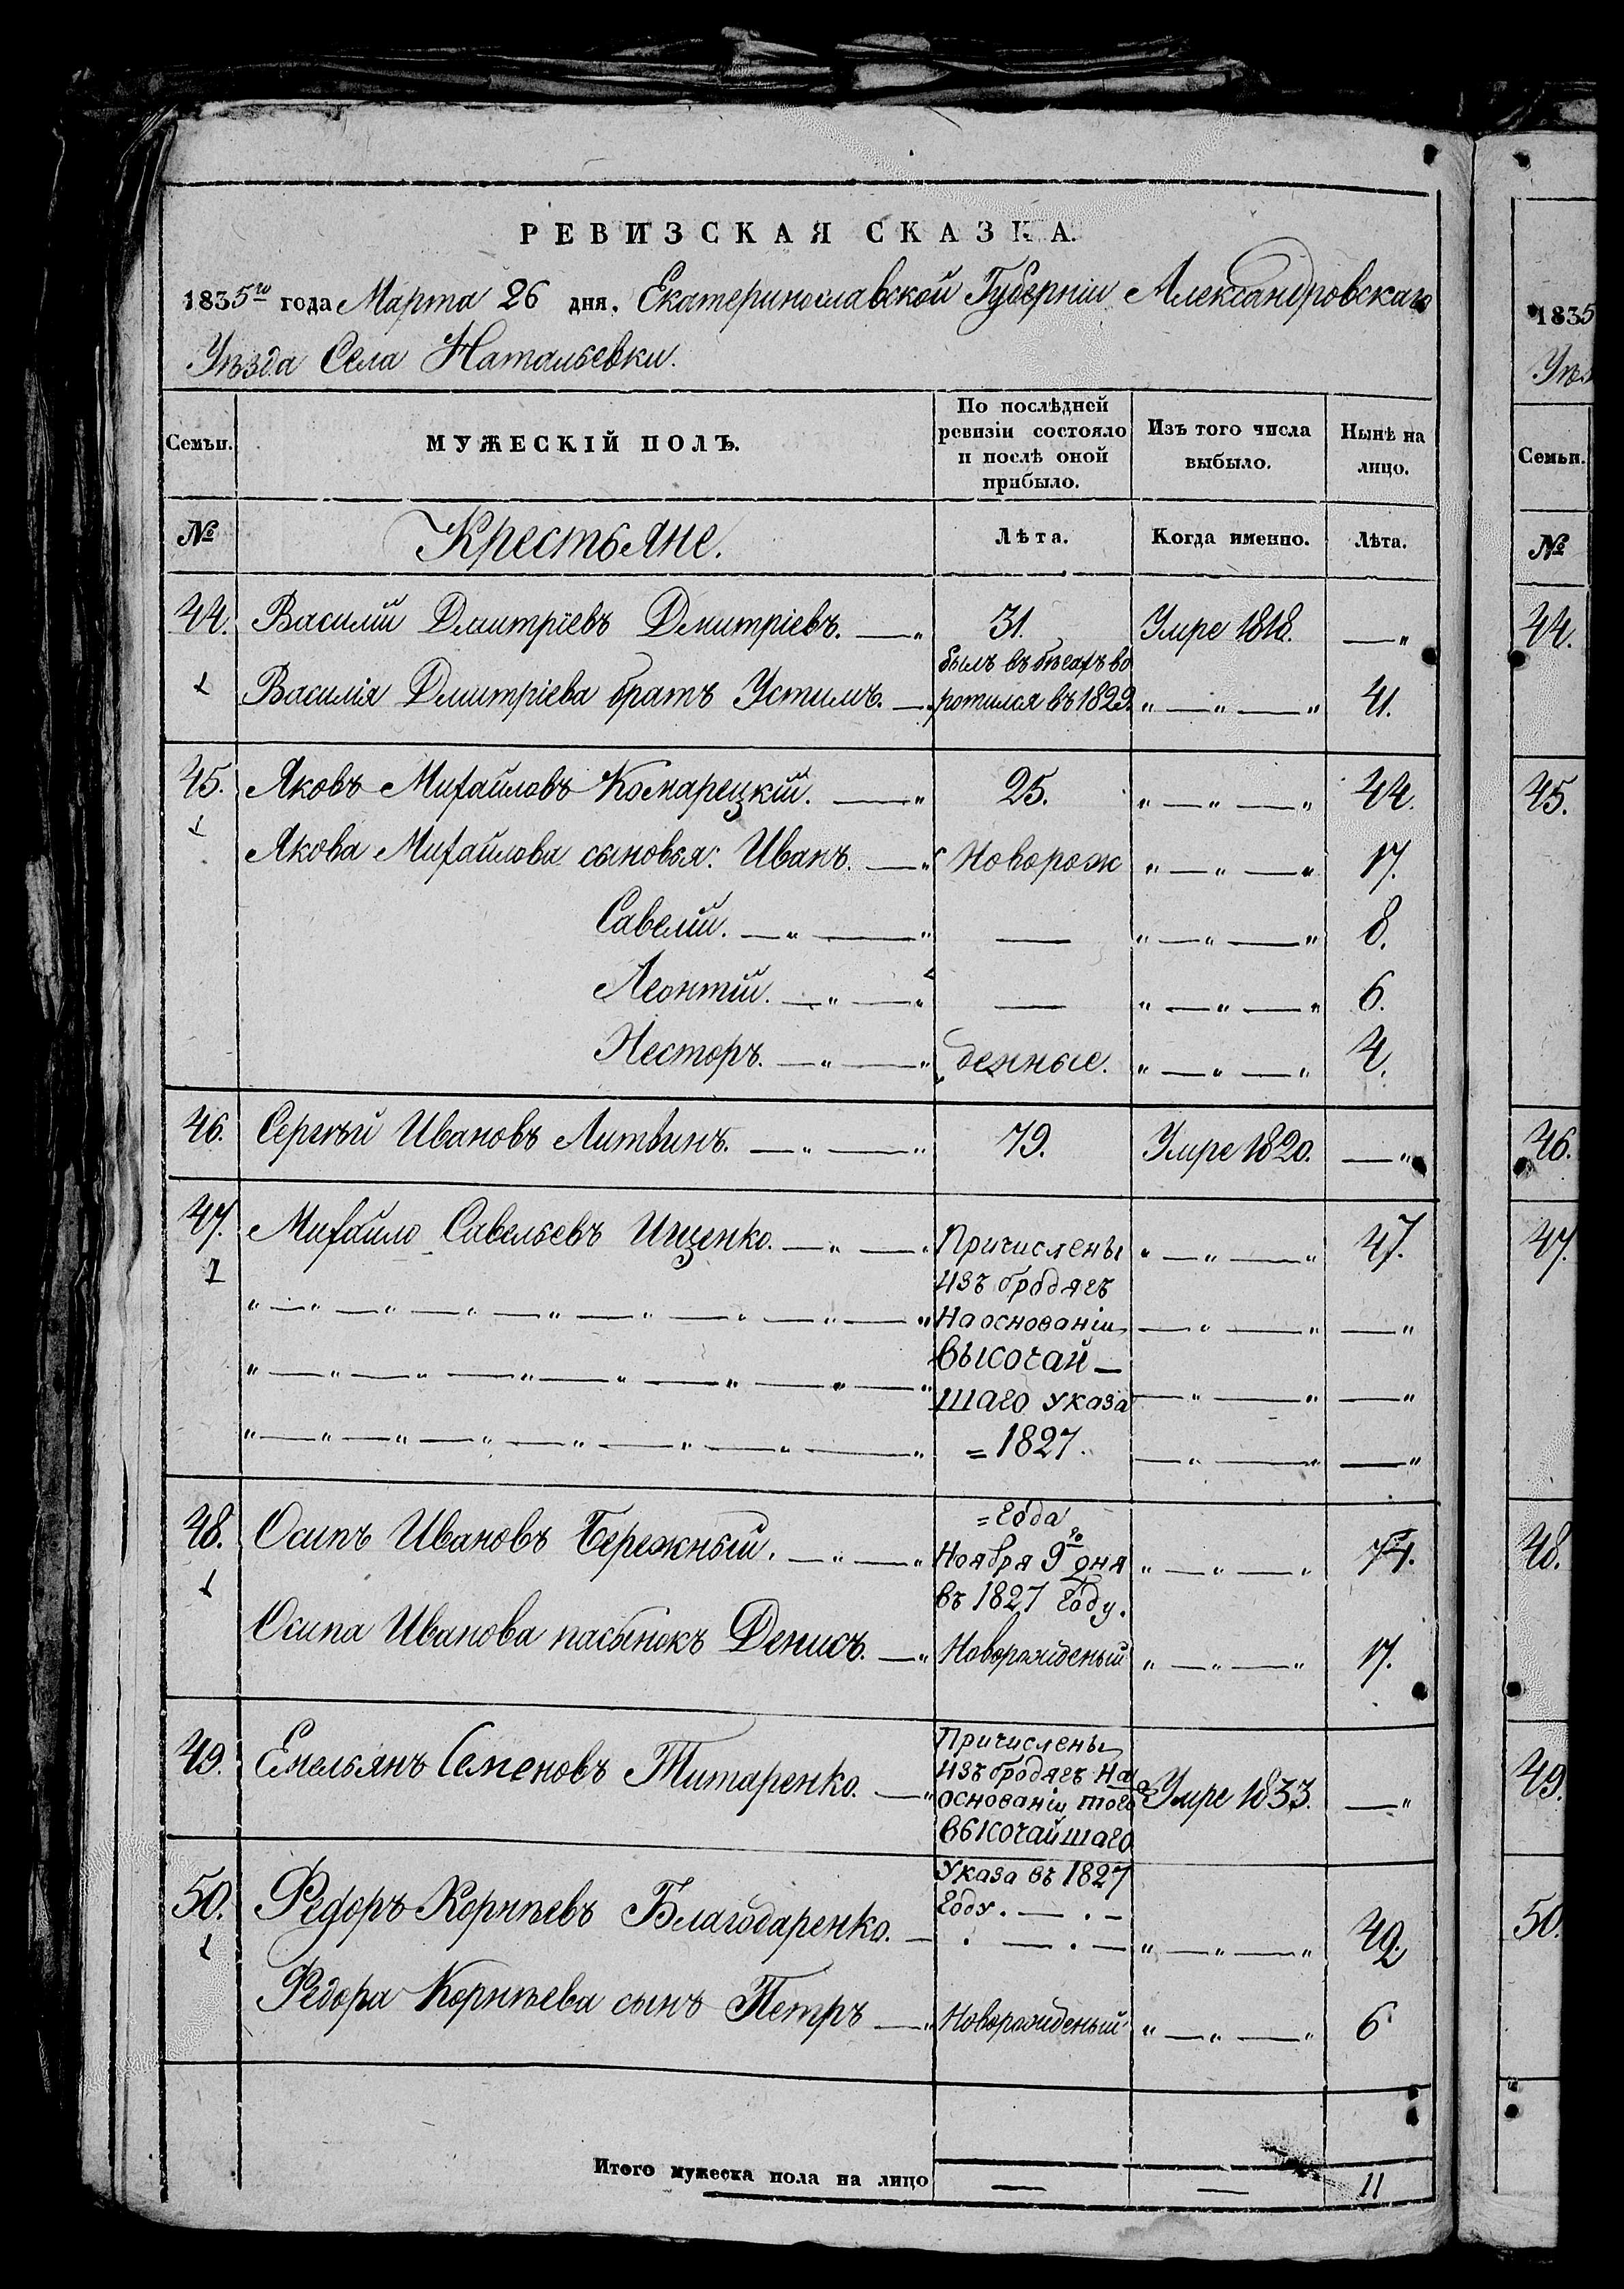 РЕВИЗСКАЯ СКАЗКА.
1835го года Марта 26 дня. Екатеринославской Губерніи Александровскаго
Уѣзда Села Натальевки.
Семьи. МУЖЕСКІЙ ПОЛЪ. По послѣдней ревизіи состояло и послѣ оной прибыло. Изъ того числа выбыло. Нынѣ на лицо.
№ Крестьяне. Лѣта. Когда именно. Лѣта.
44. Василій Дмитріевъ Дмитріевъ. — „ 31. Умре 1818. — „
1 Василія Дмитріева братъ Устимъ. — былъ въ бѣгахъ воротился въ 1829. „ — „ — „ 41.
45. Яковъ Михайловъ Комарецкій. — „ 25. „ — „ — „ 44.
1 Якова Михайлова сыновья: Иванъ. — „ Новорож „ — „ — „ 17.
Савелій. — „ — „ — „ — „ — „ 8.
Леонтій. — „ — „ — „ — „ — „ 6.
Несторъ. — „ — „ денные. „ — „ — „ 4.
46. Сергѣй Ивановъ Литвинъ. — „ — „ 79. Умре 1820. — „
47. Михайло Савельевъ Ищенко. — „ — „ Причислены „ — „ — „ 47.
1
изъ бродягъ
На основаніи
высочай —
шаго указа
= 1827.
= года
48. Осипъ Ивановъ Бережный. — „ — „ Ноября 9го дня „ — „ — „ 74.
1
въ 1827 году.
Осипа Иванова пасынокъ Денисъ. — „ Новорожденый „ — „ — „ 17.
Причислены
49. Емельянъ Семеновъ Титаренко. — „ изъ бродягъ На Умре 1833. — „
основаніи того
высочайшаго
Указа въ 1827
году. — . —
50. Федоръ Корнѣевъ Благодаренко. — . — . — „ — „ — „ 49.
1
Федора Корнѣева сынъ Петръ — „ Новорожденый „ — „ — „ 6
Итого мужеска пола на лицо — — 11
1835
Уѣз
Семьи.
№
44.
45.
46.
47.
48.
49.
50.